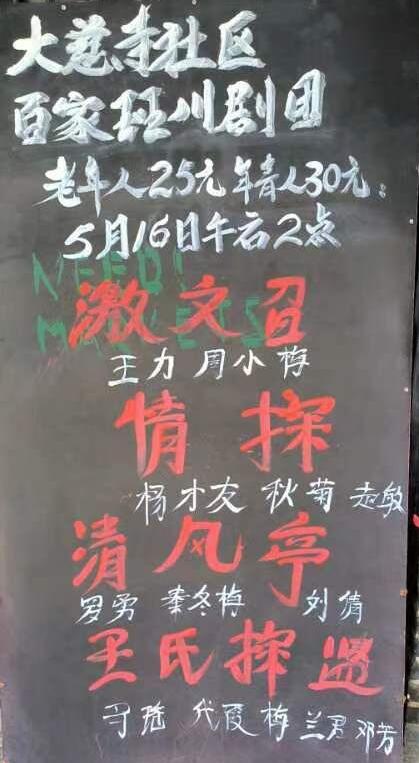 大慈寺社区
百家班川剧团
老年人25元年青人30元:
5月16日午后2点
NEED!
激文召
王力 周小梅
情探
杨才友 秋菊 赵敏
清风亭
罗勇 秦冬梅 刘倩
王氏探监
代霞梅 兰君 邓芳